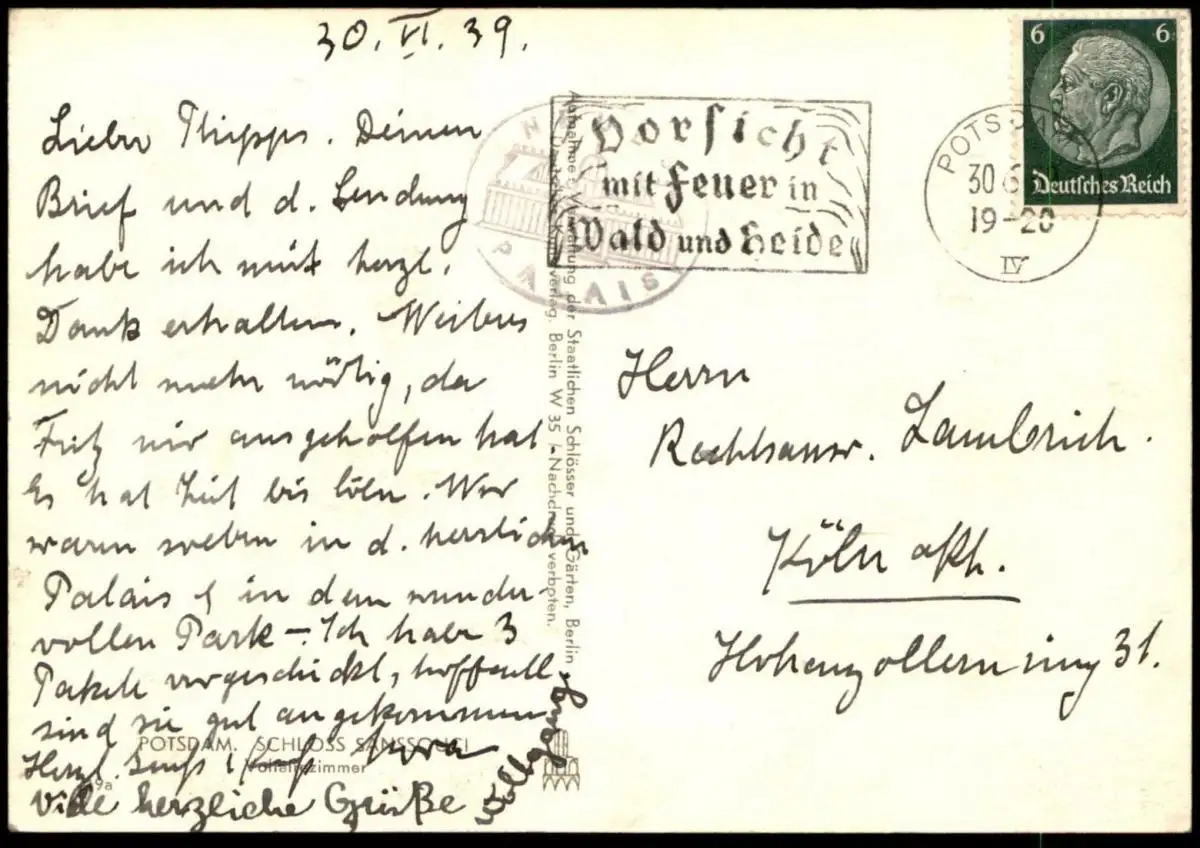 30. VI. 39.
Lieber Phipps. Deinen
Brief und d. Sendung
habe ich mit herzl.
Dank erhalten. Weiteres
nicht mehr nötig, da
Fritz mir ausgeholfen hat
Es hat Zeit bis Cöln. Wir
waren soeben in d. herrlichen
Palais & in dem wunder-
vollen Park – Ich habe 3
Pakete vorgeschickt, hoffentl.
sind sie gut angekommen
Herzl.
viele herzliche Grüße Wolfgang
POTSDAM. SCHLOSS SANSSOUCI
Voltairezimmer
9a
Aufnahme: Verwaltung der Staatlichen Schlösser und Gärten, Berlin
Berlin W 35 / Nachdruck verboten.
PALAIS
Vorsicht
mit Feuer in
Wald und Heide
POTSDAM
30 6
19-20
IV
6 6
Deutsches Reich
Herrn
Rechtsanw. Lambrich.
Köln a/Rh.
Hohenzollernring 31.